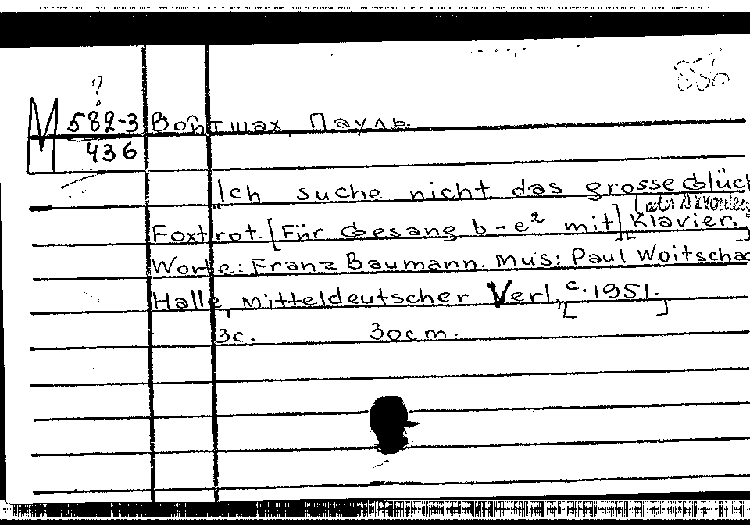 856
?
M 582-3
436
Войтшах, Пауль.
Ich suche nicht das grosse Glüc
Foxtrot. [Für Gesang b-e² mit] Klavier.
Worte: Franz Baumann. Mus: Paul Woitschac
Halle, mitteldeutscher Verl., [c. 1951.]
3c. 30cm.